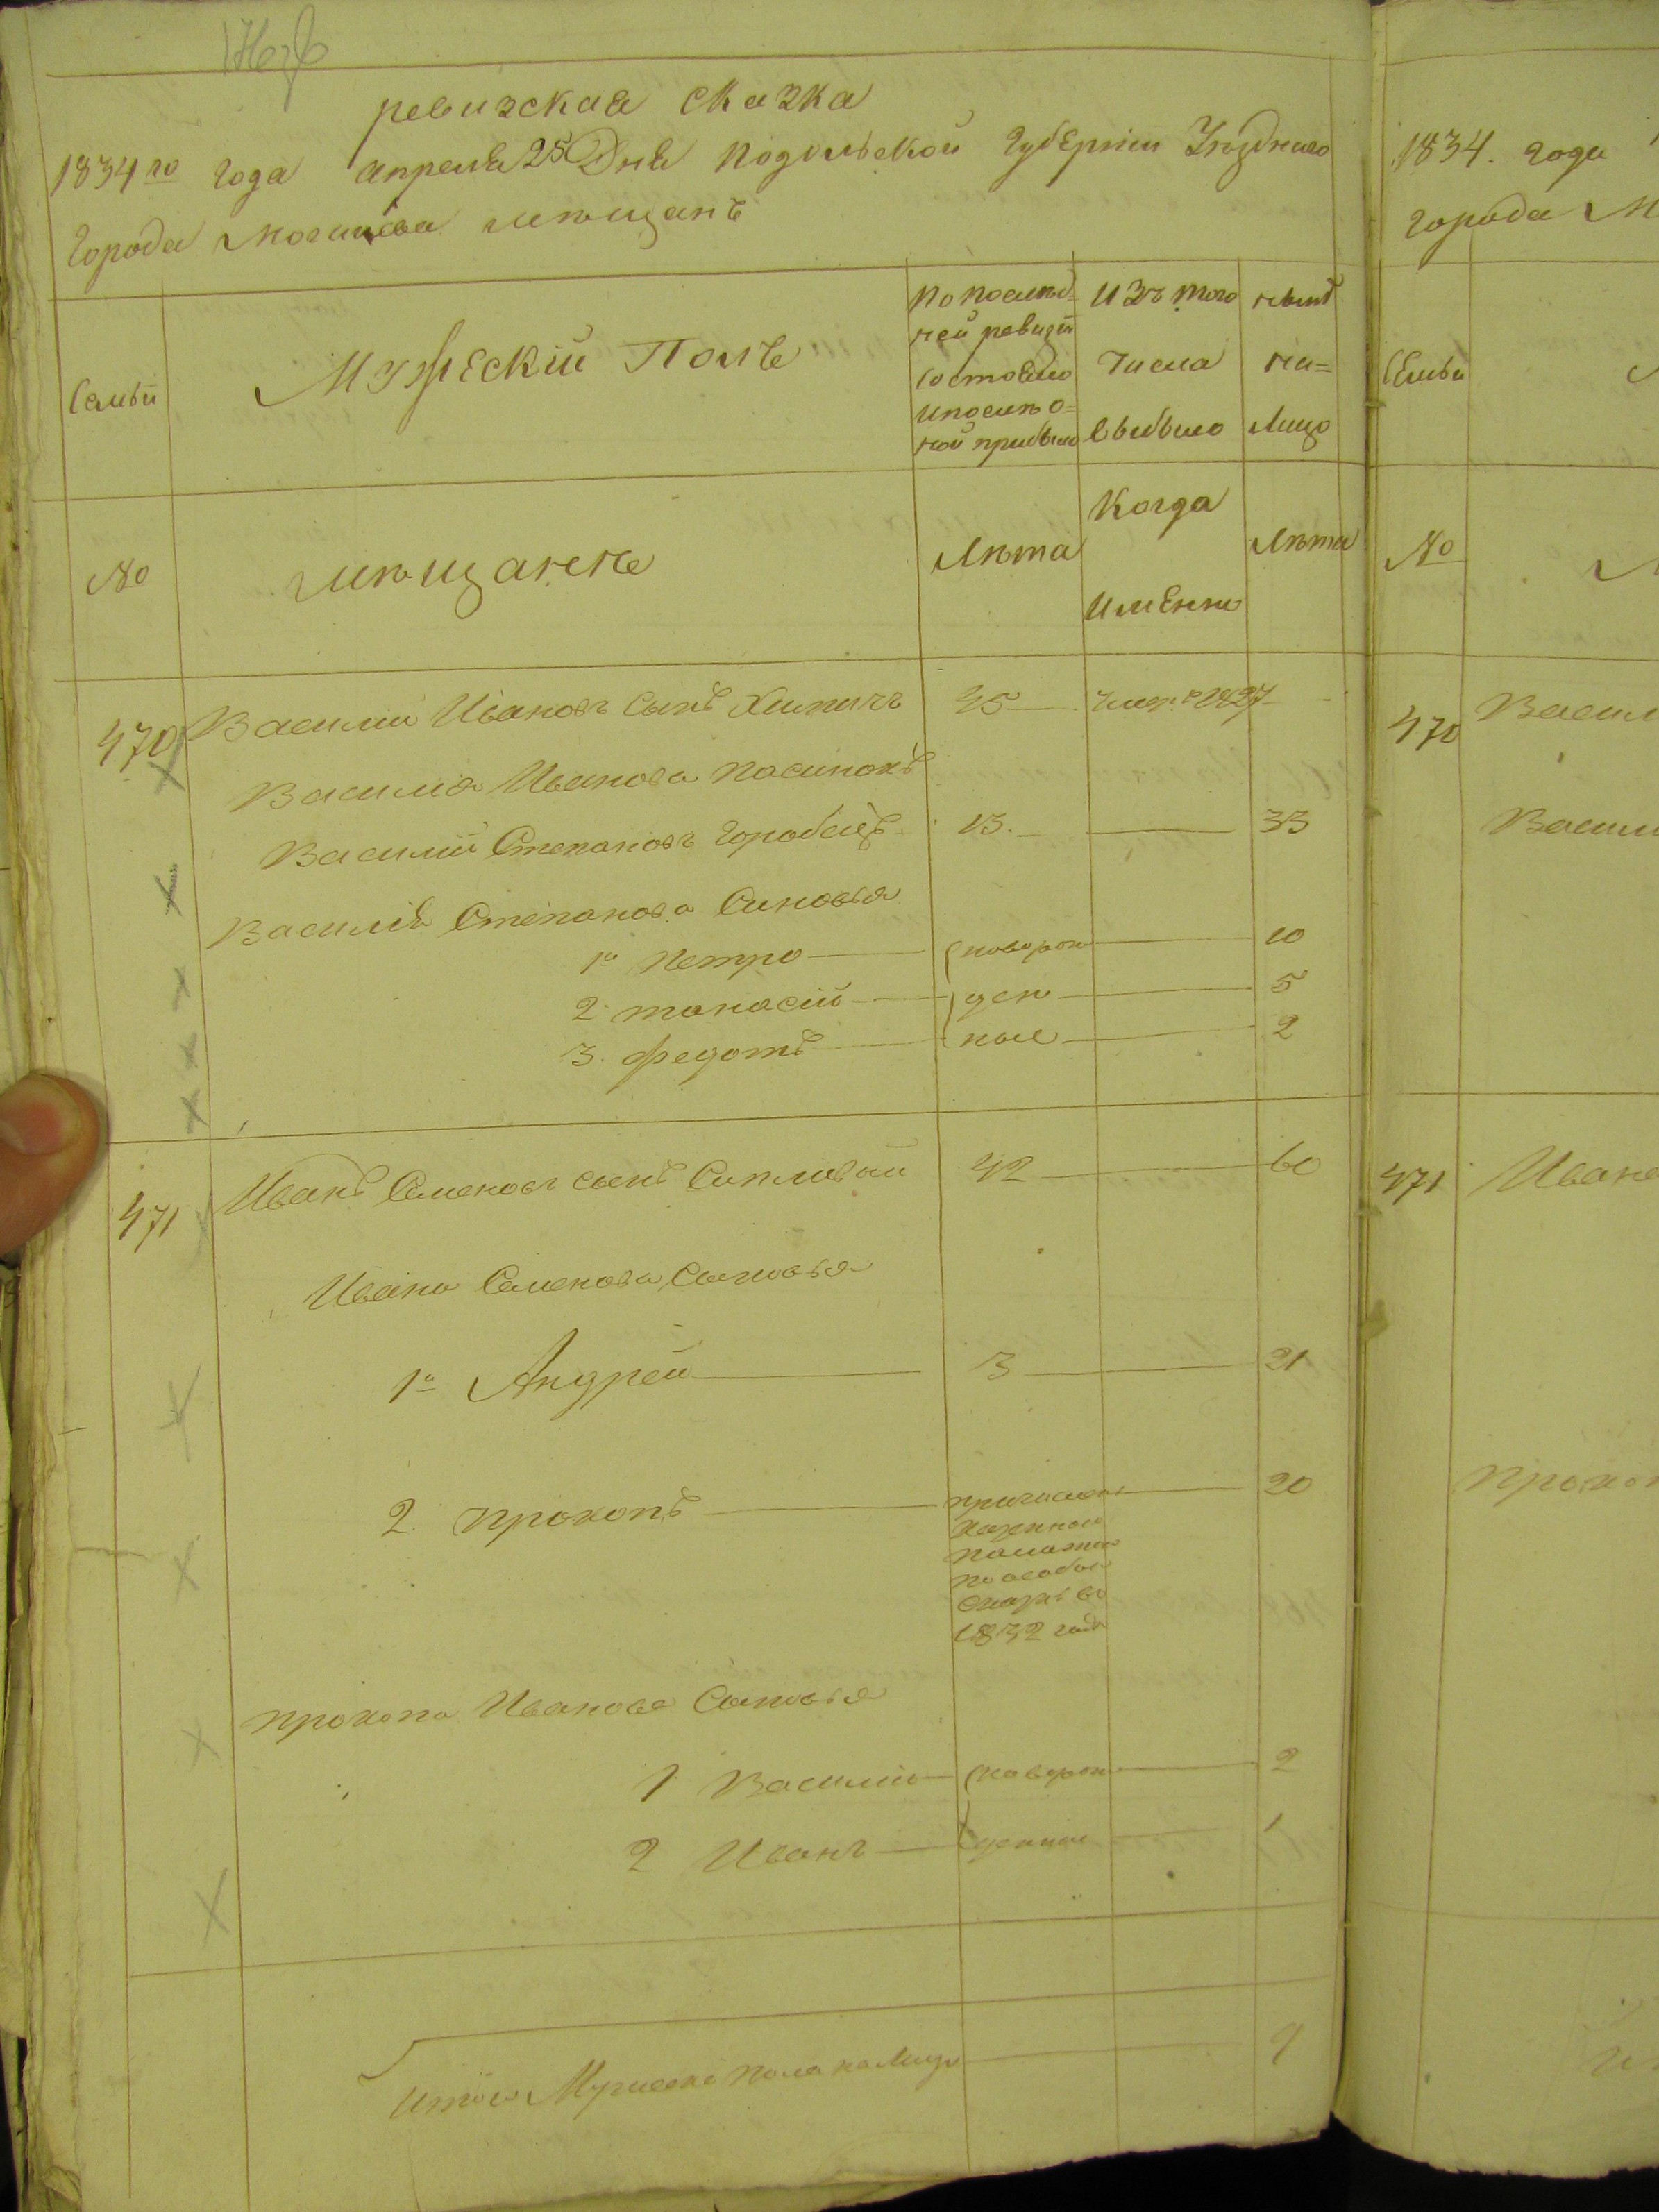 ревизская сказка
1834го года апреля 25 Дня Подольской Губернии Уезднаго
Города Могилева мещанъ
Семьи
Мужескій Полъ
По послед=
ней ревизіи
состояло
и после о=
ной прибыло
Изъ того
числа
выбыло
ныне
на=
лицо
№
мещанне
Лета
Когда
именно
Лета
470
Василий Ивановъ сынъ
45
умер. 1827
Василия Иванова пасинокъ
Василій Степановъ Горобецъ
15.
33
Василія Степанова Синовья
1й Петро
новорож
10
2. танасій
ден
5
3. Федотъ
ные
2
471
Иванъ Семеновъ сынъ Сипливый
42
60
Ивана Семенова Сыновья
1й Андрей
3
21
2. Прокопъ
причислен
казенною
палатою
по особой
сказке во
1832 года
20
Прокопа Иванова Сыновья
1 Василий
новорож
2
2 Иванъ
денные
1
Итого Мужеска пола налицо
9
1834. года
города М
Семьи
№
470
Васил
Васили
471
Ивана
Прокоп